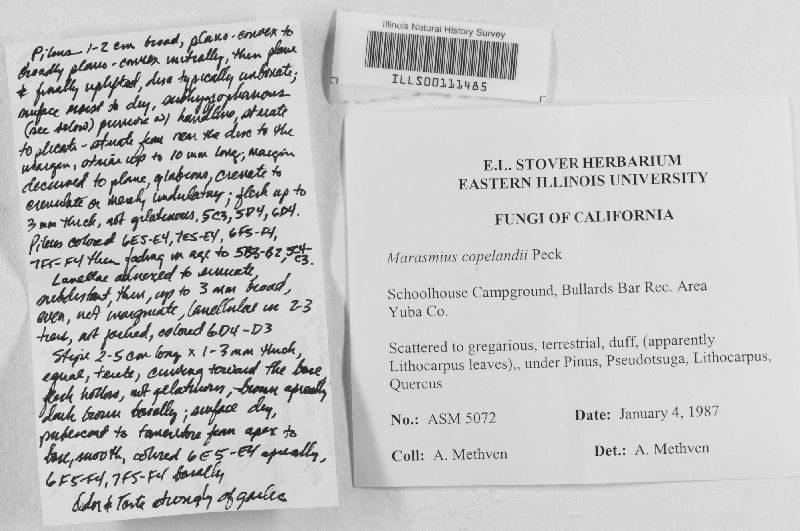 Pileus 1-2 cm broad, plano-convex to
broadly plano-convex initially, then plane
& finally uplifted, disc typically umbonate;
surface moist to dry, subhygrophanous
(see below) pruinose w/ handlens, striate
to plicate-striate from near the disc to the
margin, striae up to 10 mm long; margin
decurved to plane, glabrous, crenate to
crenulate or merely undulating; flesh up to
3 mm thick, not gelatinous, 5C3, 5D4, 6D4.
Pileus colored 6E5-E4, 7E5-E4, 6F5-F4,
7F5-F4 then fading in age to 5B3-B2, 5C4-
C3.
Lamellae adnexed to sinuate,
subdistant, thin, up to 3 mm broad,
even, not marginate, lamellulae in 2-3
tiers, not forked, colored 6D4-D3
Stipe 2-5 cm long x 1-3 mm thick,
equal, terete, curving toward the base
flesh hollow, not gelatinous, brown apically
dark brown basally; surface dry,
pubescent to tomentose from apex to
base, smooth, colored 6E5-E4 apically,
6F5-F4, 7F5-F4 basally
Odor & Taste strongly of garlic
Illinois Natural History Survey
ILLS00111485
E.L. STOVER HERBARIUM
EASTERN ILLINOIS UNIVERSITY
FUNGI OF CALIFORNIA
Marasmius copelandii Peck
Schoolhouse Campground, Bullards Bar Rec. Area
Yuba Co.
Scattered to gregarious, terrestrial, duff, (apparently
Lithocarpus leaves),, under Pinus, Pseudotsuga, Lithocarpus,
Quercus
No.: ASM 5072 Date: January 4, 1987
Coll: A. Methven Det.: A. Methven